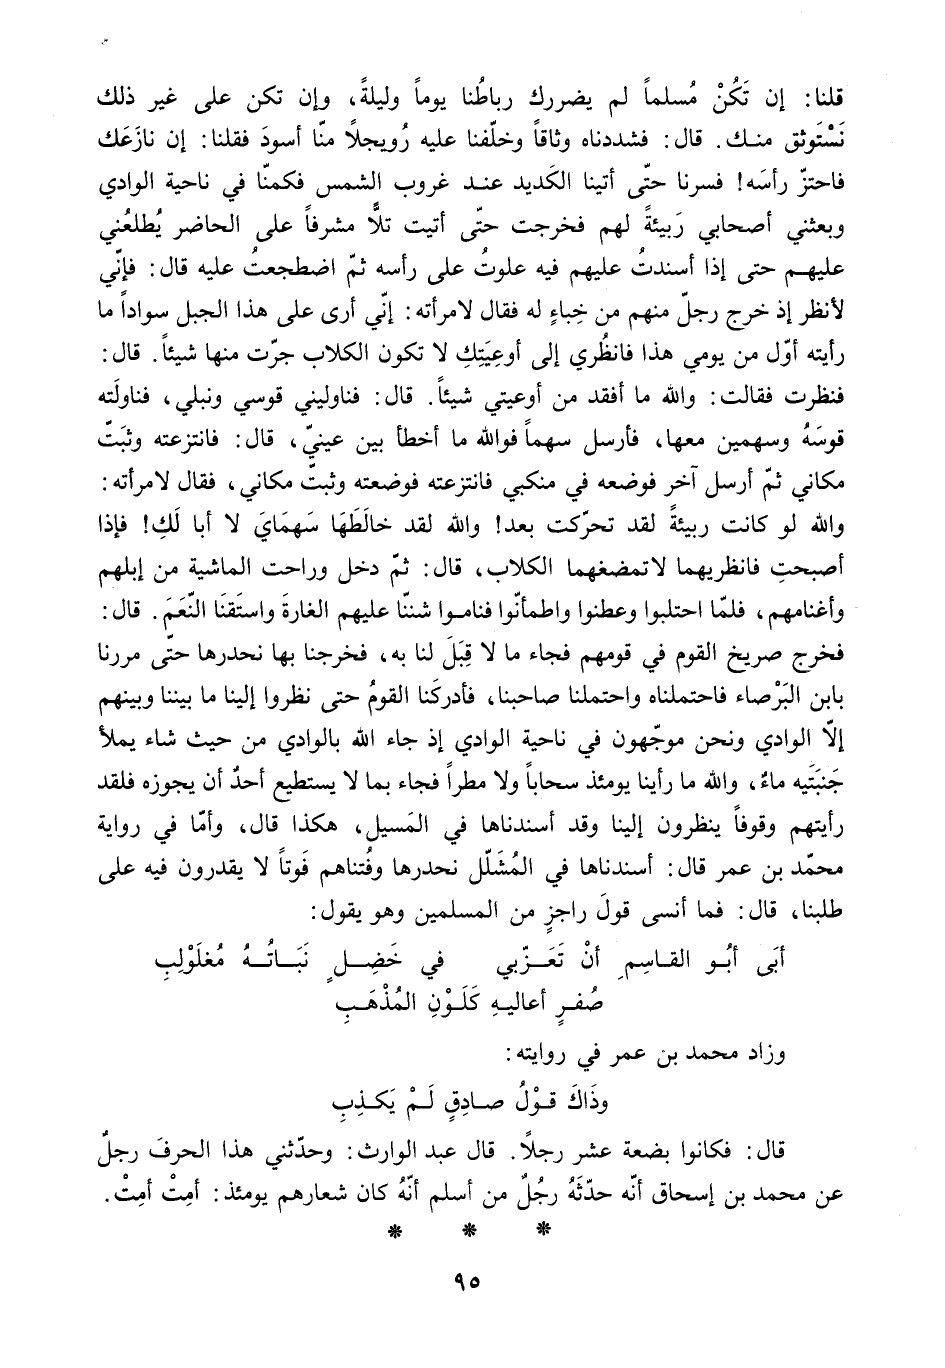 قلنا: إن تَكُنْ مُسلماً لم يضررك رباطُنا يوماً وليلةً، وإن تكن على غير ذلك
نَسْتَوثق منك. قال: فشددناه وثاقاً وخلّفنا عليه رُويجلاً منّا أسودَ فقلنا: إن نازَعَك
فاحتزّ رأسَه! فسرنا حتّى أتينا الكَديد عند غروب الشمس فكمنّا في ناحية الوادي
وبعثني أصحابي رَبيئةً لهم فخرجت حتّى أتيت تلًّا مشرفاً على الحاضر يُطلعُني
عليهم حتى إذا أسندتُ عليهم فيه علوتُ على رأسه ثمّ اضطجعتُ عليه قال: فإنّي
لأنظر إذ خرج رجلٌ منهم من خِباءٍ له فقال لامرأته: إنّي أرى على هذا الجبل سواداً ما
رأيته أوّل من يومي هذا فانظُري إلى أوعِيَتِكِ لا تكون الكلاب جرّت منها شيئاً. قال:
فنظرت فقالت: والله ما أفقد من أوعيتي شيئاً. قال: فناوليني قوسي ونبلي، فناولَته
قوسَهُ وسهمين معها، فأرسل سهماً فوالله ما أخطأ بين عينيّ، قال: فانتزعته وثبَتّ
مكاني ثمّ أرسل آخر فوضعه في منكبي فانتزعته فوضعته وثبتّ مكاني، فقال لامرأته:
والله لو كانت ربيئةً لقد تحرّكت بعد! والله لقد خالَطَهَا سَهمَايَ لا أبا لَكِ! فإذا
أصبحتِ فانظريهما لاتمضغهما الكلاب، قال: ثمّ دخل وراحت الماشية من إبلهم
وأغنامهم، فلمّا احتلبوا وعطنوا واطمأنّوا فناموا شننّا عليهم الغارةَ واستَقنَا النّعَمَ. قال:
فخرج صريخ القوم في قومهم فجاء ما لا قِبَلَ لنا به، فخرجنا بها نحدرها حتّى مررنا
بابن البَرْصاء فاحتملناه واحتملنا صاحبنا، فأدركَنا القومُ حتى نظروا إلينا ما بيننا وبينهم
إلّا الوادي ونحن موجّهون في ناحية الوادي إذ جاء الله بالوادي من حيث شاء يملأ
جَنبَتَيه ماءً، والله ما رأينا يومئذ سحاباً ولا مطراً فجاء بما لا يستطيع أحدٌ أن يجوزه فلقد
رأيتهم وقوفاً ينظرون إلينا وقد أسندناها في المَسيل، هكذا قال، وأمّا في رواية
محمّد بن عمر قال: أسندناها في المُشَلّل نحدرها وفُتناهم فَوتاً لا يقدرون فيه على
طلبنا، قال: فما أنسى قولَ راجزٍ من المسلمين وهو يقول:
أبَى أبُو القاسِمِ أنْ تَعَزّبي في خَضِلٍ نَبَاتُهُ مُغلَوْلِبِ
صُفرٍ أعاليهِ كَلَوْنِ المُذْهَبِ
وزاد محمد بن عمر في روايته:
وذَاكَ قوْلُ صادِقٍ لَمْ يَكذِبِ
قال: فكانوا بضعة عشر رجلًا. قال عبد الوارث: وحدّثني هذا الحرفَ رجلٌ
عن محمد بن إسحاق أنّه حدّثَهُ رجُلٌ من أسلم أنّهُ كان شعارهم يومئذ: أمِتْ أمِتْ.
* * *
٩٥